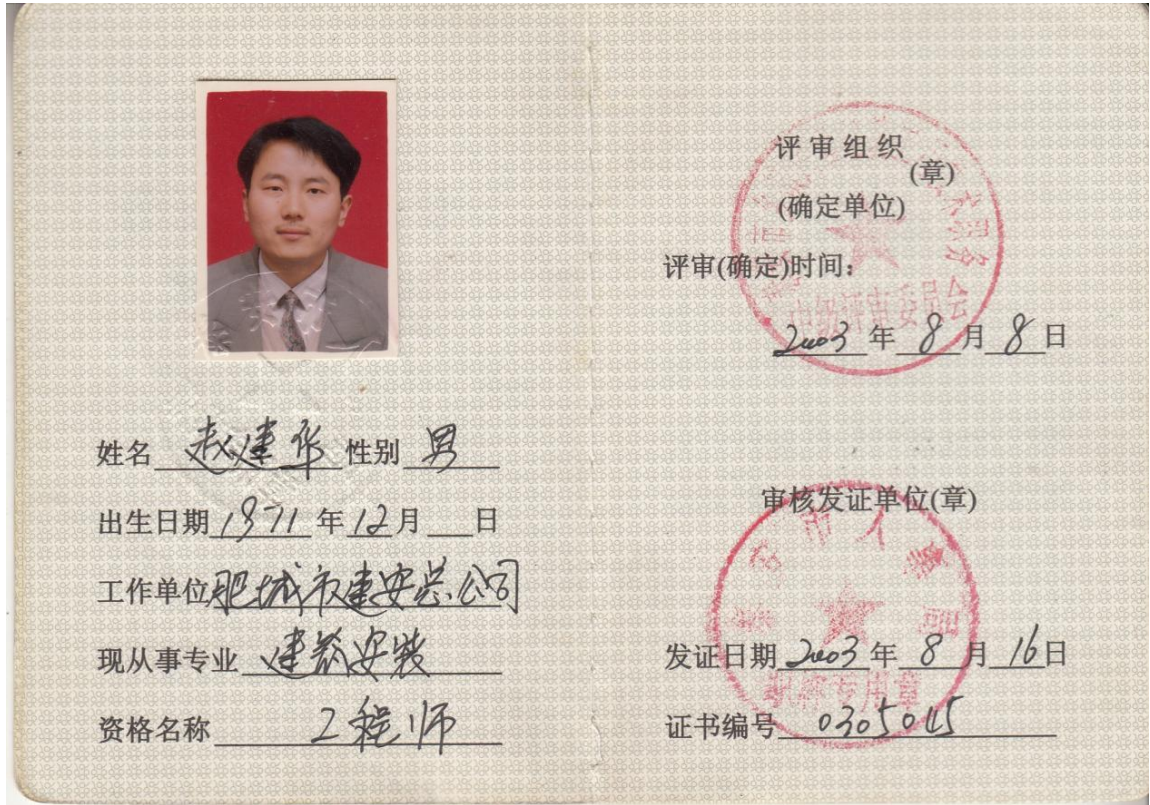 姓名 赵建华 性别 男
出生日期 1971 年 12 月 日
工作单位 肥城市建安总公司
现从事专业 建筑安装
资格名称 工程师
评审组织
(章)
(确定单位)
评审(确定)时间:
中级评审委员会
2003 年 8 月 8 日
审核发证单位(章)
泰安市人事局
发证日期 2003 年 8 月 16 日
职称专用章
证书编号 0305045